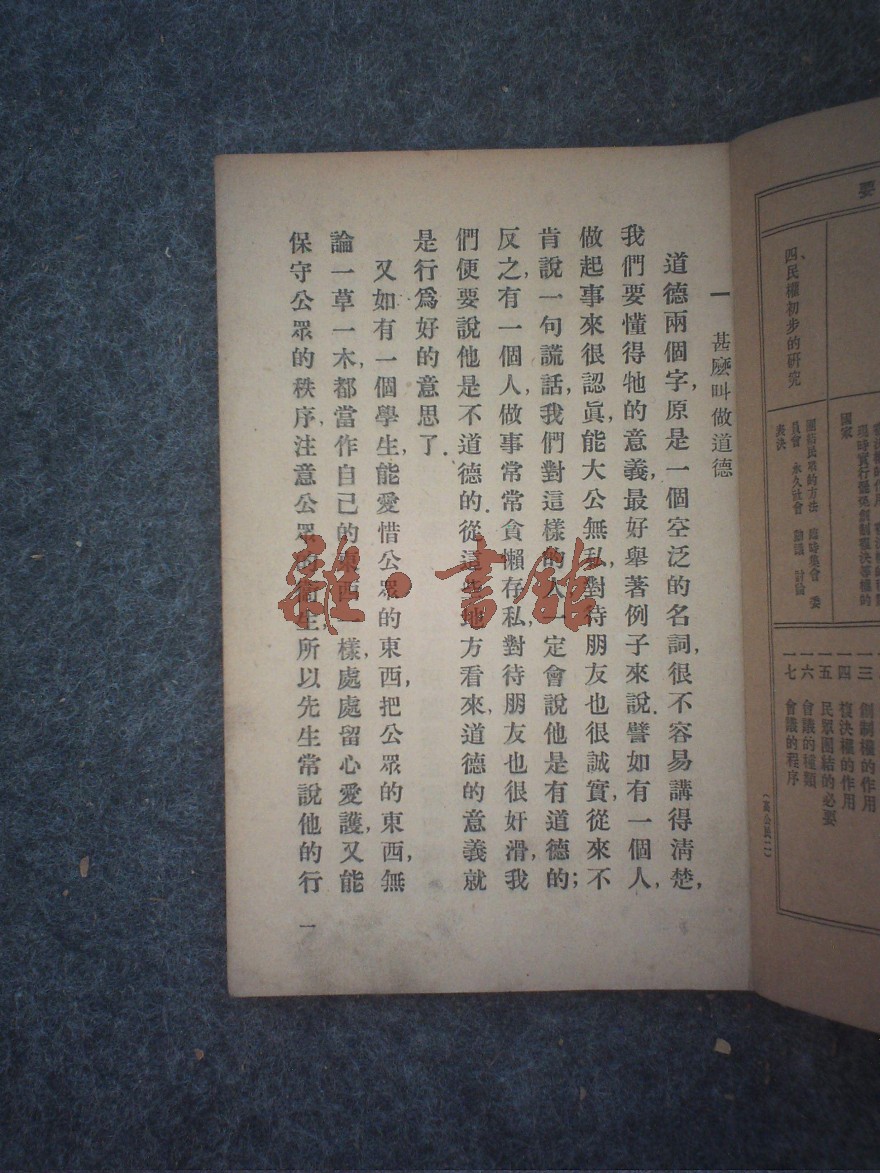 要
國家
四、民權初步的研究
團結民眾的方法　臨時集會　委
員會　永久社會　動議　討論
表決
一三　創制權的作用
一四　複決權的作用
一五　民眾團結的必要
一六　會議的種類
一七　會議的程序
(高公民二)
一　甚麼叫做道德
道德兩個字,原是一個空泛的名詞,很不容易講得清楚,
我們要懂得牠的意義,最好舉著例子來說.譬如有一個人,
做起事來很認眞,能大公無私,對待朋友也很誠實,從來不
肯說一句謊話,我們對這樣的人一定會說他是有道德的;
反之,有一個人,做事常常貪懶存私,對待朋友也很奸滑,我
們便要說他是不道德的.從這些地方看來,道德的意義就
是行爲好的意思了.
又如有一個學生,能愛惜公眾的東西,把公眾的東西,無
論一草一木,都當作自己的東西一樣,處處留心愛護,又能
保守公眾的秩序,注意公眾的衞生,所以先生常說他的行
一
雜·書館